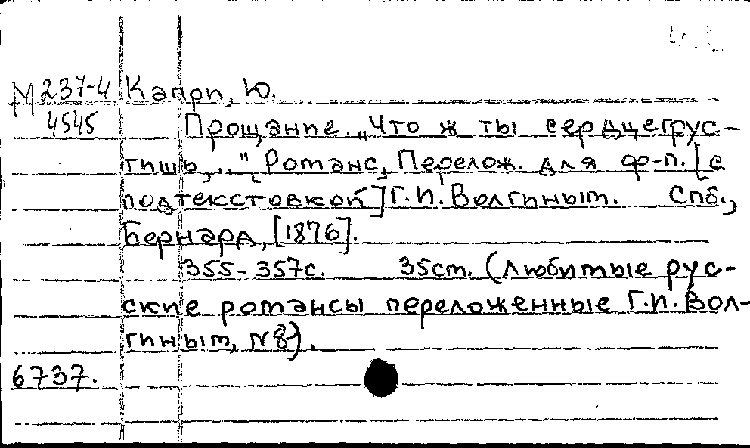 М 237-4 Капри, Ю.
4545
Прощание. „Что ж ты сердце грус-
тишь,..", Романс, Перелож. для ф-п. [с
подтекстовкой] Г. И. Волгиным. Спб.,
Бернард, [1876].
355-357с. 35см. (Любимые рус-
ские романсы переложенные Г. И. Вол-
гиным, N8).
6737.